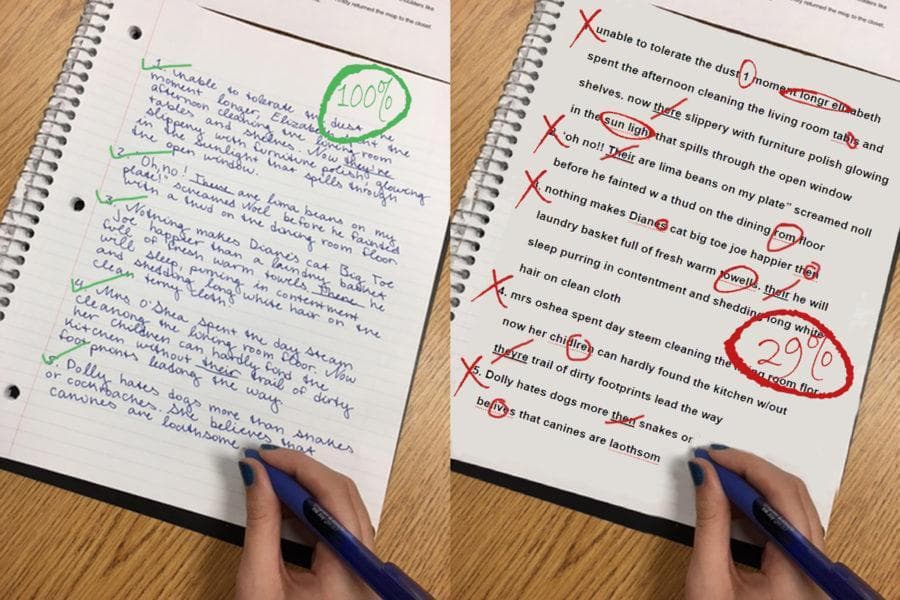 shoulders like
ostly returned the mop to the closet.
1. Unable to tolerate the dust one
moment longer, Elizabeth spent the
afternoon cleaning the living room
tables and shelves. Now they're
slippery with furniture polish, glowing
the the sunlight that spills through
open window.
2. Oh, no! These are lima beans on my
plate!" screamed Noel before he fainted
with a thud on the dining room floor.
3. Nothing makes Diane's cat Big Toe
Joe happier than a laundry basket
full of fresh warm towels. There he
will sleep, purring in contentment
and shedding long white hair on the
clean terry cloth.
4. Mrs O'Shea spent the day steam
cleanong the living room floor. Now
her children can hardly find the
kitchen without their trail of dirty
foot pronts leading the way
5. Dolly hates dogs more than snakes
or cockroaches. She believes that
canines are loathsome
100%
ostly returned the mop to the closet.
unable to tolerate the dust 1 moment longr elizabeth
spent the afternoon cleaning the living room tabls and
shelves. now there slippery with furniture polish glowing
in the sun ligh that spills through the open window
2. 'oh no!! Their are lima beans on my plate" screamed noll
before he fainted w a thud on the dining rom floor
nothing makes Dianes cat big toe joe happier then
laundry basket full of fresh warm towells. their he will
sleep purring in contentment and shedding long white
hair on clean cloth
4. mrs oshea spent day steem cleaning the living room flor
now her chidlren can hardly found the kitchen w/out
theyre trail of dirty footprints lead the way
5. Dolly hates dogs more then snakes or
belives that canines are laothsom
29%